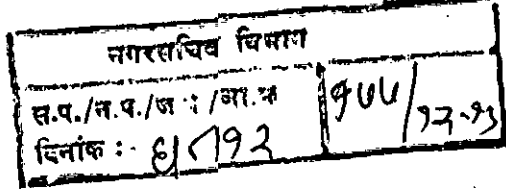 नगरसचिव विभाग
स.प./न.प./ज : /जा.क्र १७५/१२-१३
दिनांक :- ६/८/१२